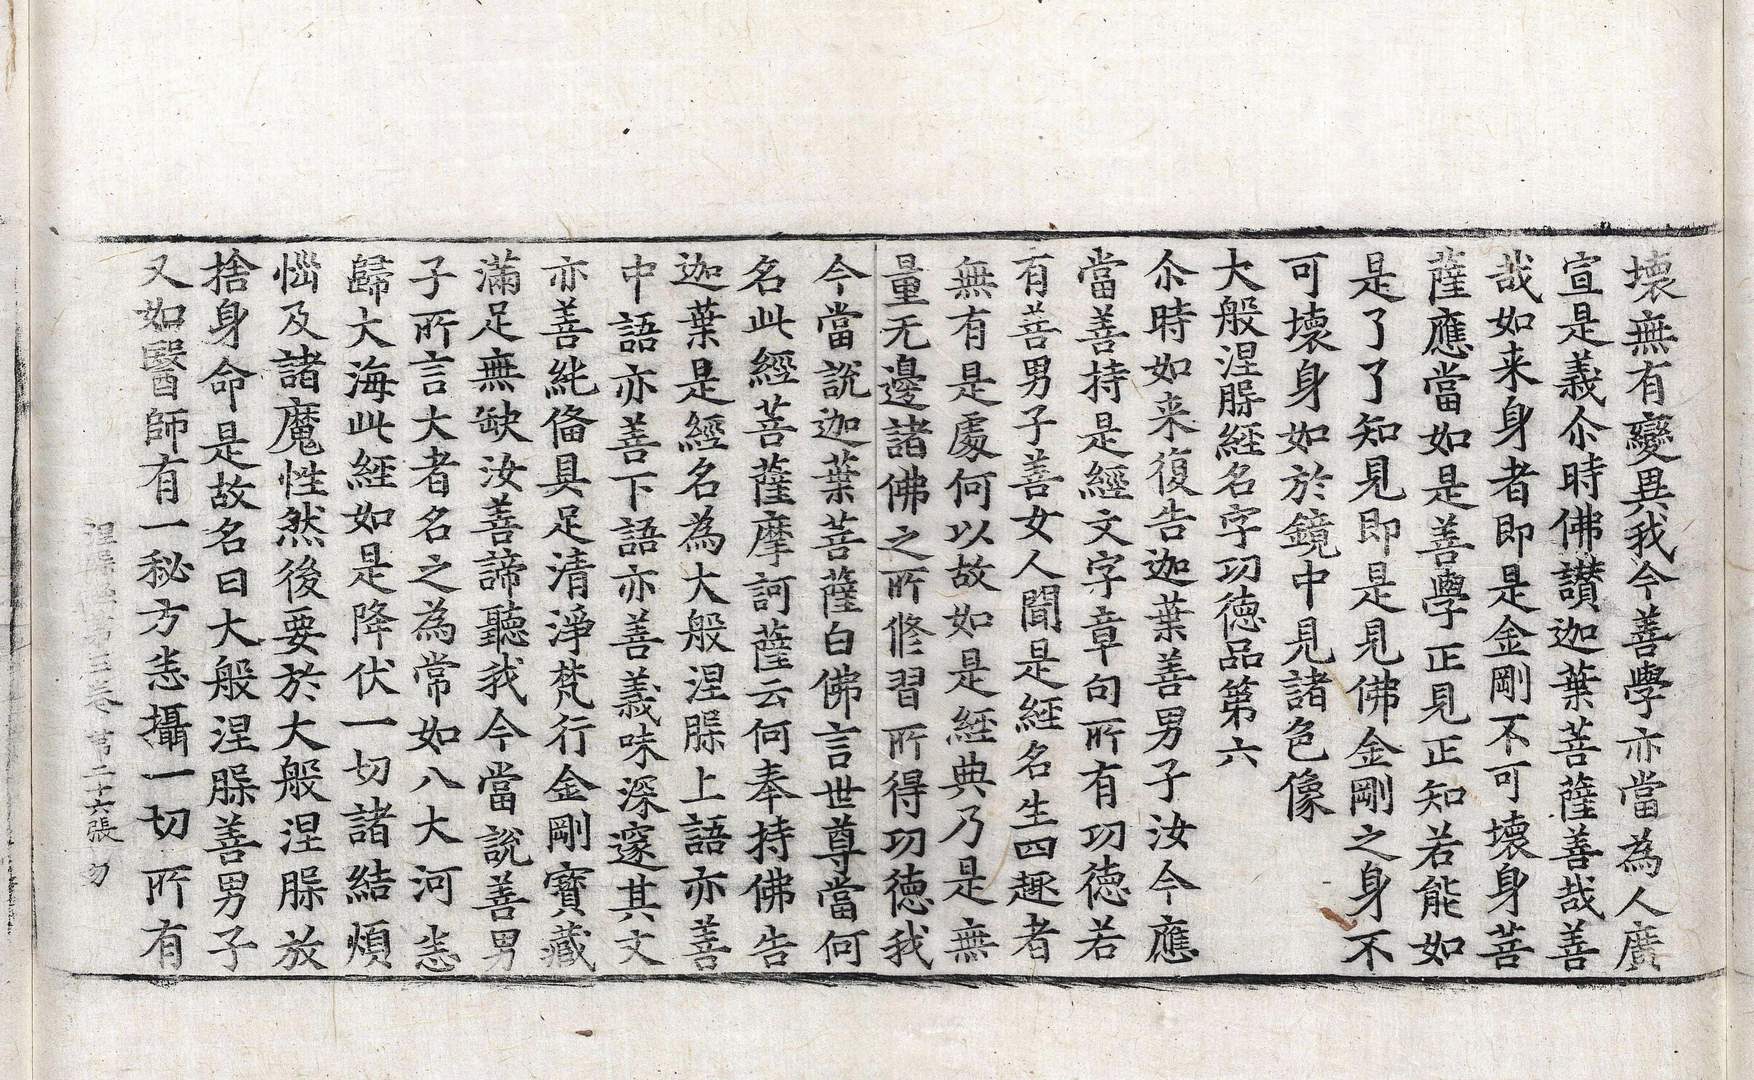 壊無有變異我今善學亦當為人廣
宣是義尒時佛讃迦葉菩薩善哉善
哉如来身者即是金剛不可壊身菩
薩應當如是善學正見正知若能如
是了了知見即是見佛金剛之身不
可壊身如於鏡中見諸色像
大般涅槃經名字功徳品第六
尒時如来復告迦葉善男子汝今應
當善持是經文字章句所有功徳若
有善男子善女人聞是經名生四趣者
無有是處何以故如是經典乃是無
量无邊諸佛之所修習所得功徳我
今當説迦葉菩薩白佛言世尊當何
名此經菩薩摩訶薩云何奉持佛告
迦葉是經名為大般涅槃上語亦善
中語亦善下語亦善義味深邃其文
亦善純俻具足清淨梵行金剛寶藏
滿足無缺汝善諦聽我今當說善男
子所言大者名之為常如八大河悉
歸大海此經如是降伏一切諸結煩
惱及諸魔性然後要於大般涅槃放
捨身命是故名曰大般涅槃善男子
又如醫師有一秘方悉攝一切所有
涅槃經第三卷 第二十六張 勿